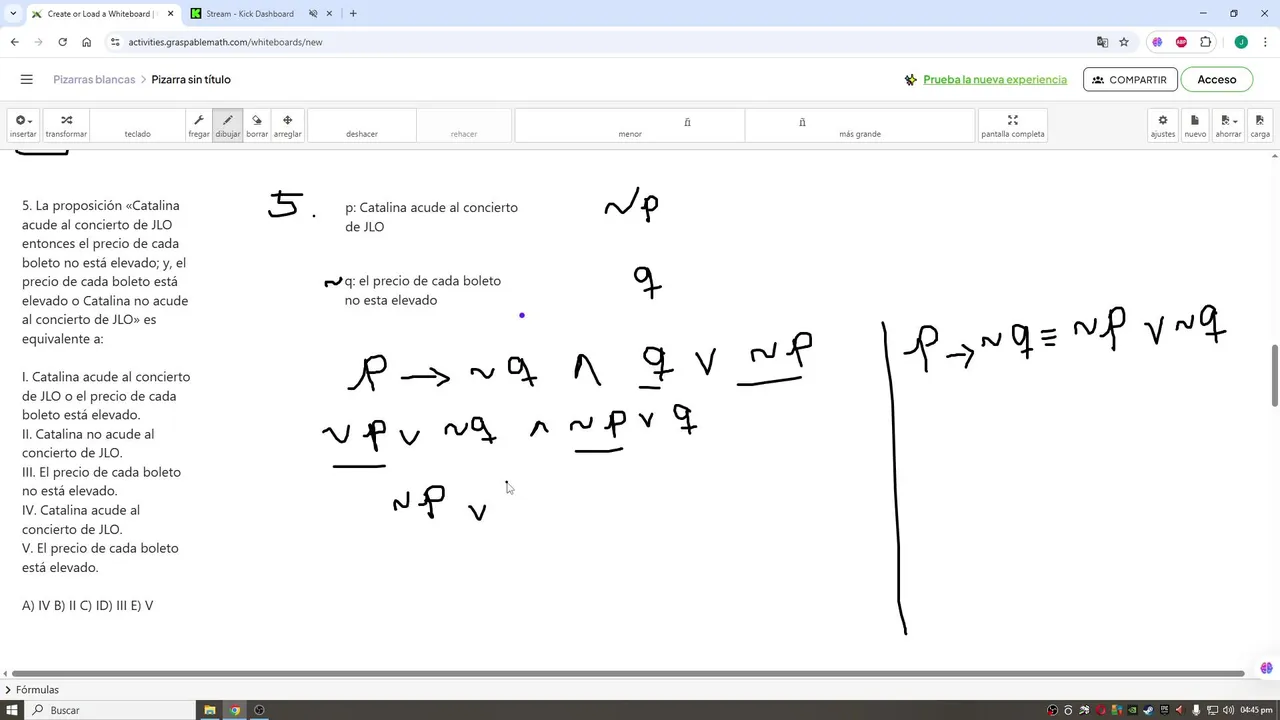 Create or Load a Whiteboard |
Stream - Kick Dashboard
activities.graspablemath.com/whiteboards/new
Pizarras blancas > Pizarra sin título
Prueba la nueva experiencia
COMPARTIR
Acceso
insertar transformar teclado fregar dibujar borrar arreglar deshacer rehacer menor ñ ñ más grande pantalla completa ajustes nuevo ahorrar carga
5. La proposición «Catalina
acude al concierto de JLO
entonces el precio de cada
boleto no está elevado; y, el
precio de cada boleto está
elevado o Catalina no acude
al concierto de JLO» es
equivalente a:
I. Catalina acude al concierto
de JLO o el precio de cada
boleto está elevado.
II. Catalina no acude al
concierto de JLO.
III. El precio de cada boleto
no está elevado.
IV. Catalina acude al
concierto de JLO.
V. El precio de cada boleto
está elevado.
A) IV B) II C) ID) III E) V
5.
p: Catalina acude al concierto
de JLO
~p
~q: el precio de cada boleto
no esta elevado
q
p → ~q ∧ q ∨ ~p
~p ∨ ~q ∧ ~p ∨ q
~p ∨
p → ~q ≡ ~p ∨ ~q
Fórmulas
Buscar
04:45 pm